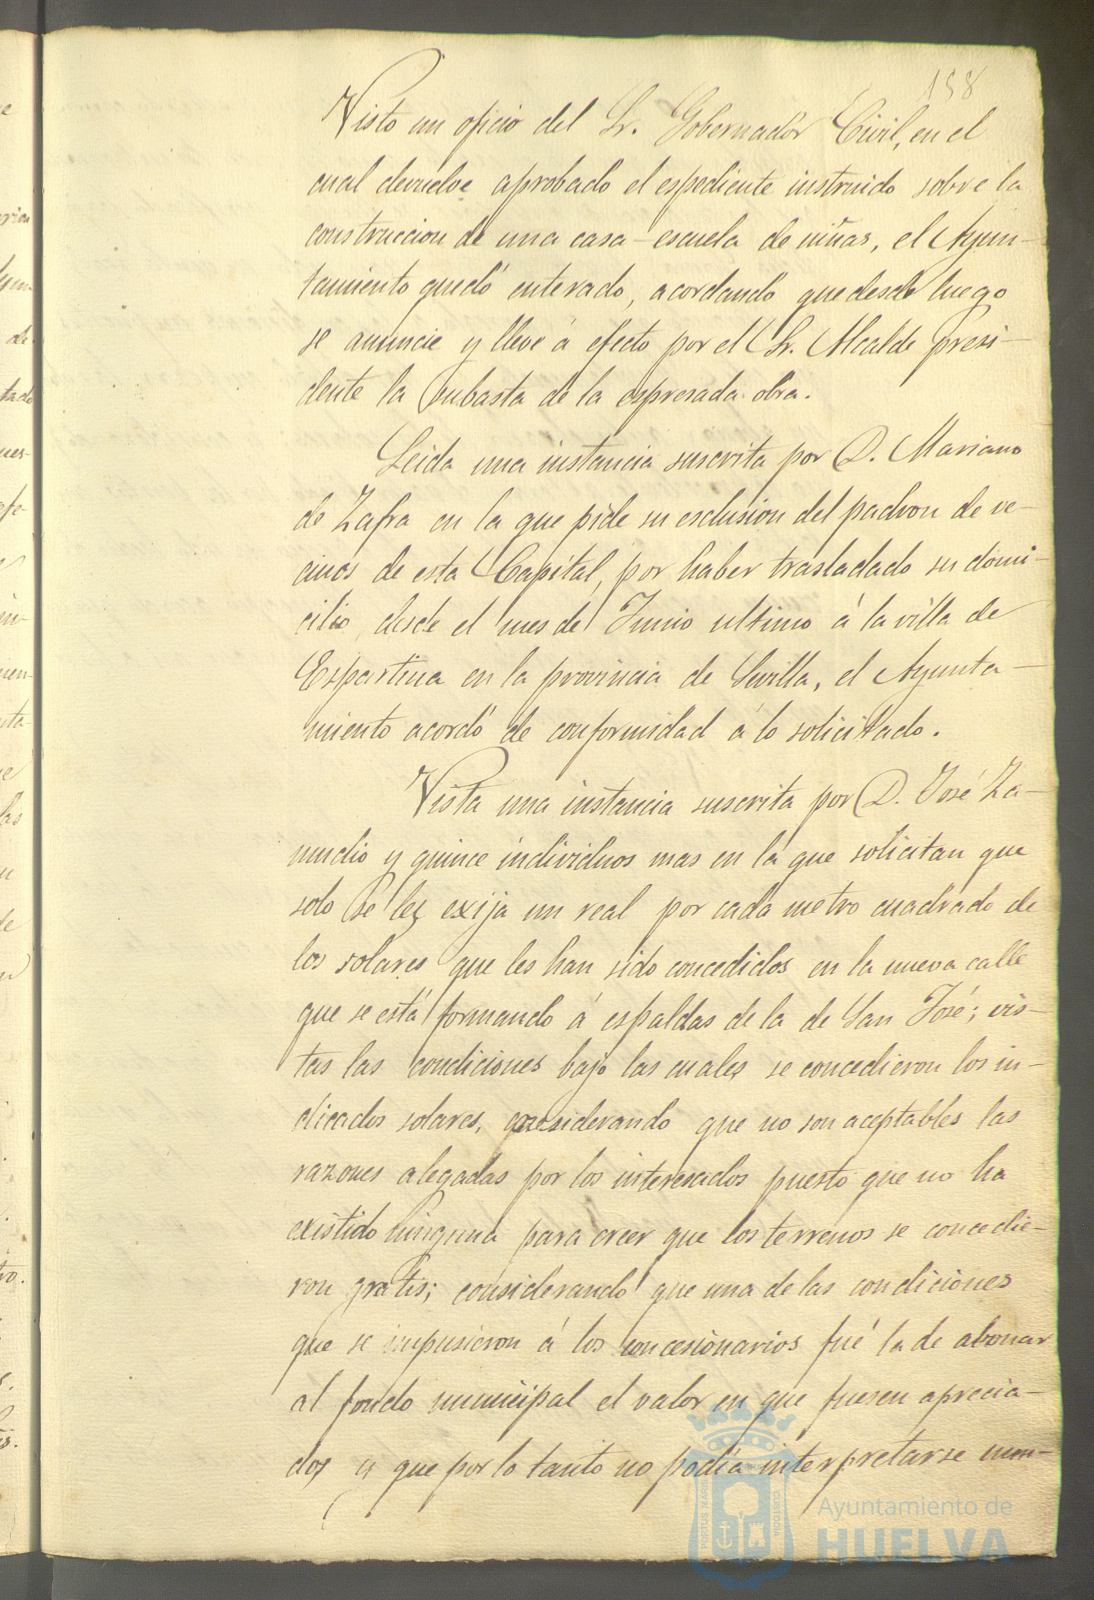 158
Visto un oficio del Sr. Gobernador Civil, en el
cual devuelve aprobado el espediente instruido sobre la
construccion de una casa-escuela de niñas, el Ayun-
tamiento quedó enterado, acordando que desde luego
se anuncie y lleve á efecto por el Sr. Alcalde presi-
dente la subasta de la espresada obra.
Leida una instancia suscrita por D. Mariano
de Zafra en la que pide su esclusion del padron de ve-
cinos de esta Capital, por haber trasladado su domi-
cilio desde el mes de Junio ultimo á la villa de
Espartina en la provincia de Sevilla, el Ayunta-
miento acordó de conformidad á lo solicitado.
Vista una instancia suscrita por D. José Za-
mudio y quince individuos mas en la que solicitan que
solo se les exija un real por cada metro cuadrado de
los solares que les han sido concedidos en la nueva calle
que se está formando á espaldas de la de San José; vis-
tas las condiciones bajo las cuales se concedieron los in-
dicados solares, considerando que no son aceptables las
razones alegadas por los interesados puesto que no ha
existido ninguna para creer que los terrenos se concedie-
ron gratis; considerando que una de las condiciones
que se impusieron á los concesionarios fué la de abonar
al fondo municipal el valor en que fuesen aprecia-
dos y que por lo tanto no podía interpretarse nun-
Ayuntamiento de
HUELVA